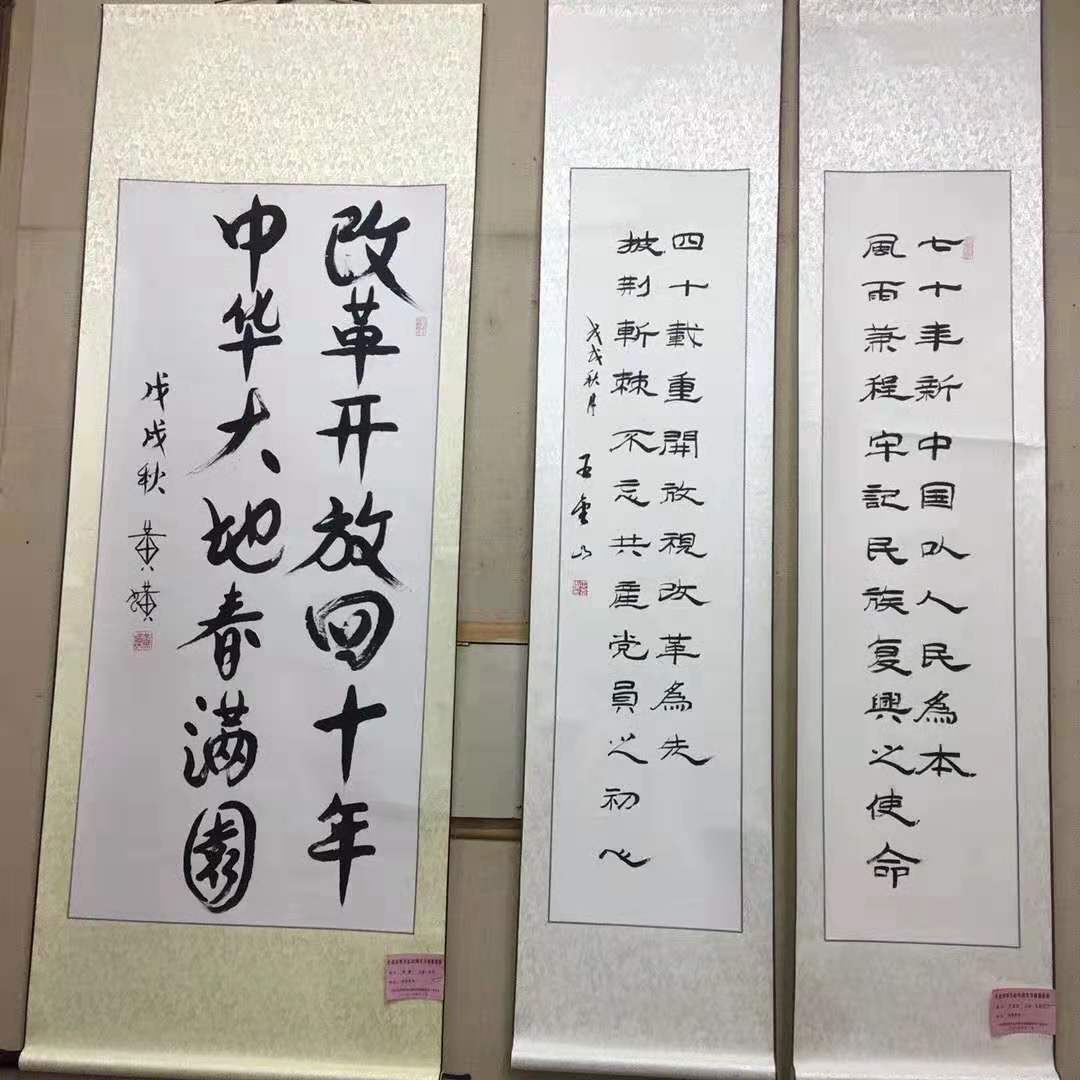 七十年新中国以人民為本
風雨兼程牢記民族复興之使命
四十載重開放視改革為先
披荆斬棘不忘共產党員之初心
戊戌秋月
王金山
改革开放四十年
中华大地春满園
戊戌秋 黄